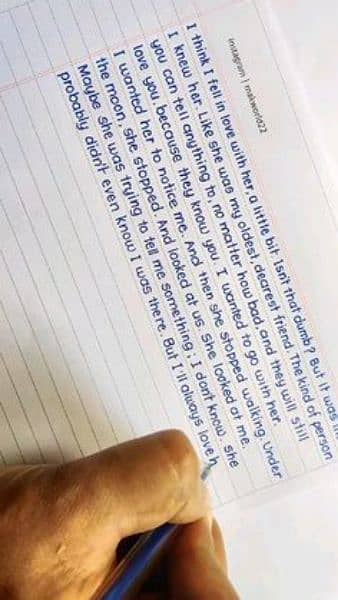 Instagram | makworld22
I think I fell in love with her, a little bit. Isn't that dumb? But it was
I knew her. Like she was my oldest, dearest friend. The kind of person
you can tell anything to, no matter how bad, and they will still
love you, because they know you. I wanted to go with her.
I wanted her to notice me. And then she stopped walking. Under
the moon, she stopped. And looked at us. She looked at me.
Maybe she was trying to tell me something; I don't know. she
probably didn't even know I was there. But I'll always love h